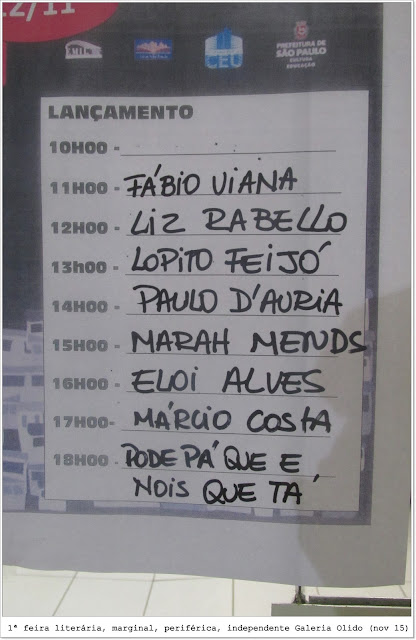 12/11
CEU
PREFEITURA DE
SÃO PAULO
CULTURA
EDUCAÇÃO
LANÇAMENTO
10H00 -
11H00 - FÁBIO VIANA
12H00 - LIZ RABELLO
13h00 - LOPITO FEIJÓ
14H00 - PAULO D'AURIA
15H00 - MARAH MENDS
16H00 - ELOI ALVES
17H00 - MÁRCIO COSTA
18H00 - PODE PÁ QUE E
NOIS QUE TÁ
1ª feira literária, marginal, periférica, independente Galeria Olido (nov 15)